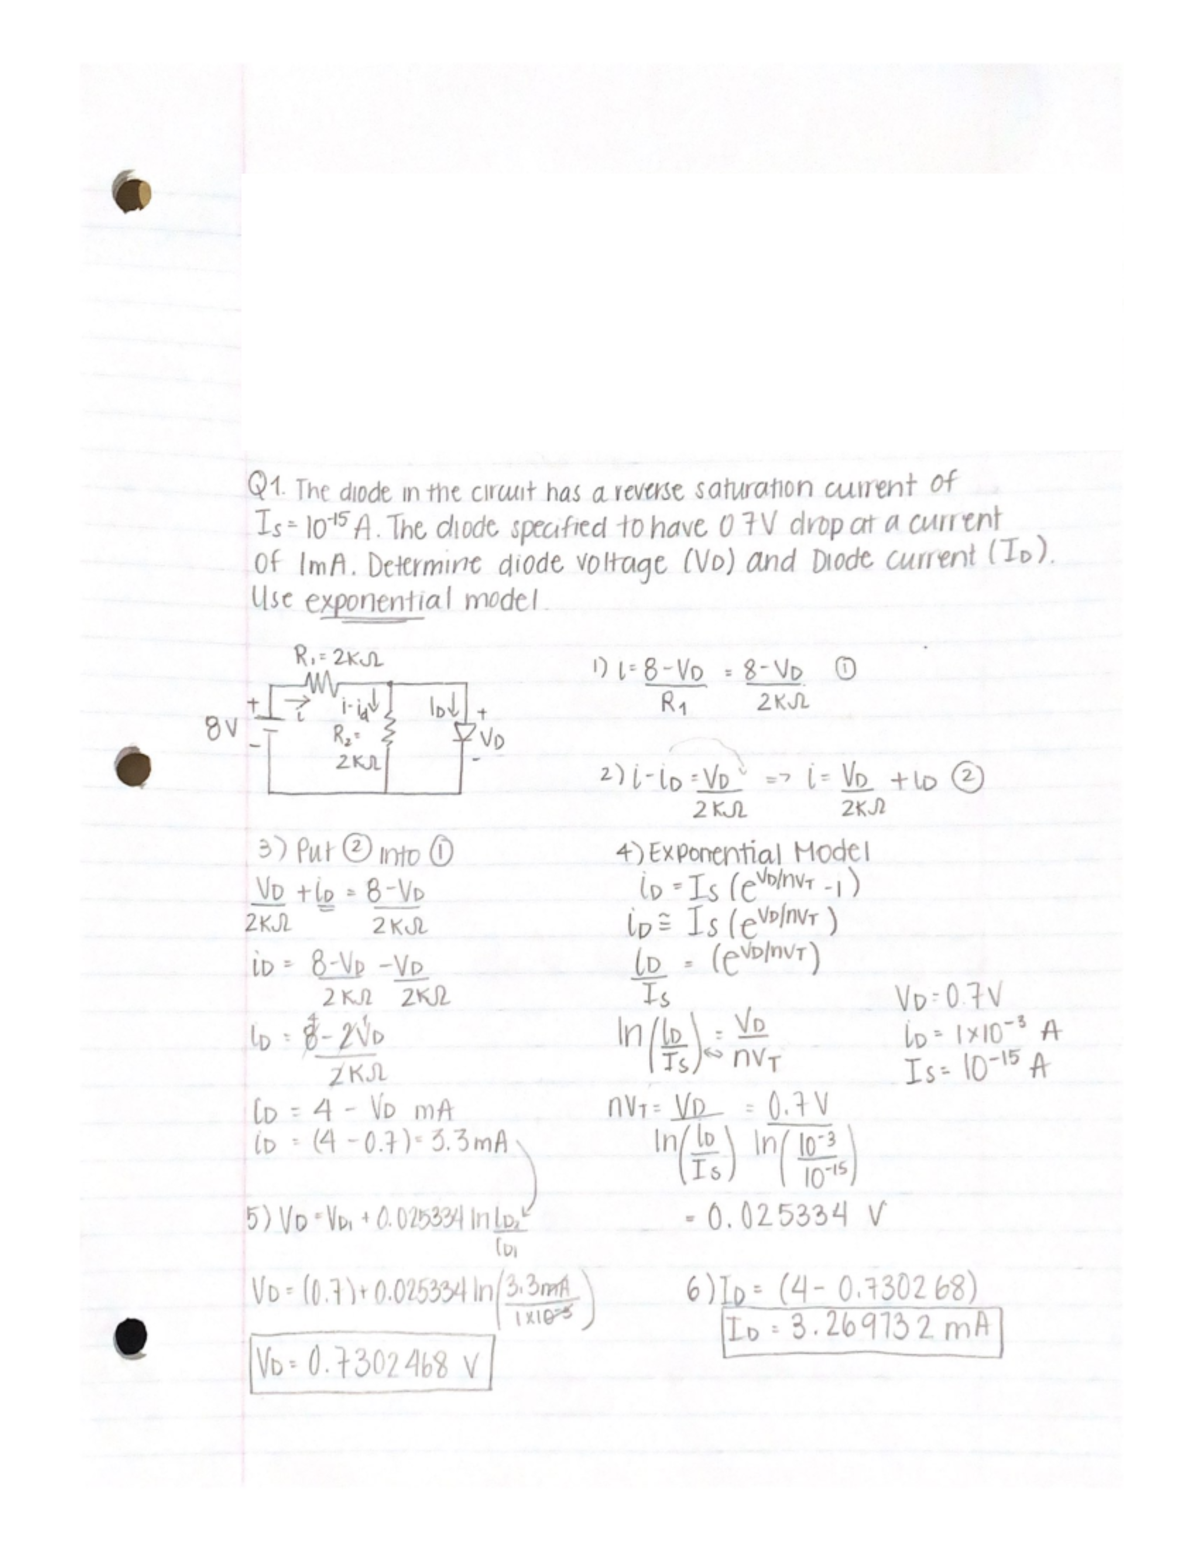 Q1. The diode in the circuit has a reverse saturation current of
Is = 10⁻¹⁵ A. The diode specified to have 0 7V drop at a current
of 1mA. Determine diode voltage (VD) and Diode current (ID).
Use exponential model.
R₁ = 2KΩ
+
i
i-id
ID
+
8V
R₂ =
VD
-
2KΩ
-
1) i = 8-VD / R₁ = 8-VD / 2KΩ ①
2) i-iD = VD / 2KΩ => i = VD / 2KΩ + iD ②
3) Put ② into ①
VD / 2KΩ + iD = 8-VD / 2KΩ
iD = 8-VD / 2KΩ - VD / 2KΩ
iD = 8 4 - 2VD / 2KΩ
iD = 4 - VD mA
iD = (4 - 0.7) = 3.3mA
4) Exponential Model
iD = Is (e^VD/nVT - 1)
iD ≅ Is (e^VD/nVT)
iD / Is = (e^VD/nVT)
ln(iD / Is) = VD / nVT
VD = 0.7V
iD = 1x10⁻³ A
Is = 10⁻¹⁵ A
nVT = VD / ln(iD / Is) = 0.7V / ln(10⁻³ / 10⁻¹⁵)
= 0.025334 V
5) VD = VD₁ + 0.025334 ln iD₂ / iD₁
VD = (0.7) + 0.025334 ln(3.3mA / 1x10⁻³)
VD = 0.7302468 V
6) ID = (4 - 0.730268)
ID = 3.269732 mA